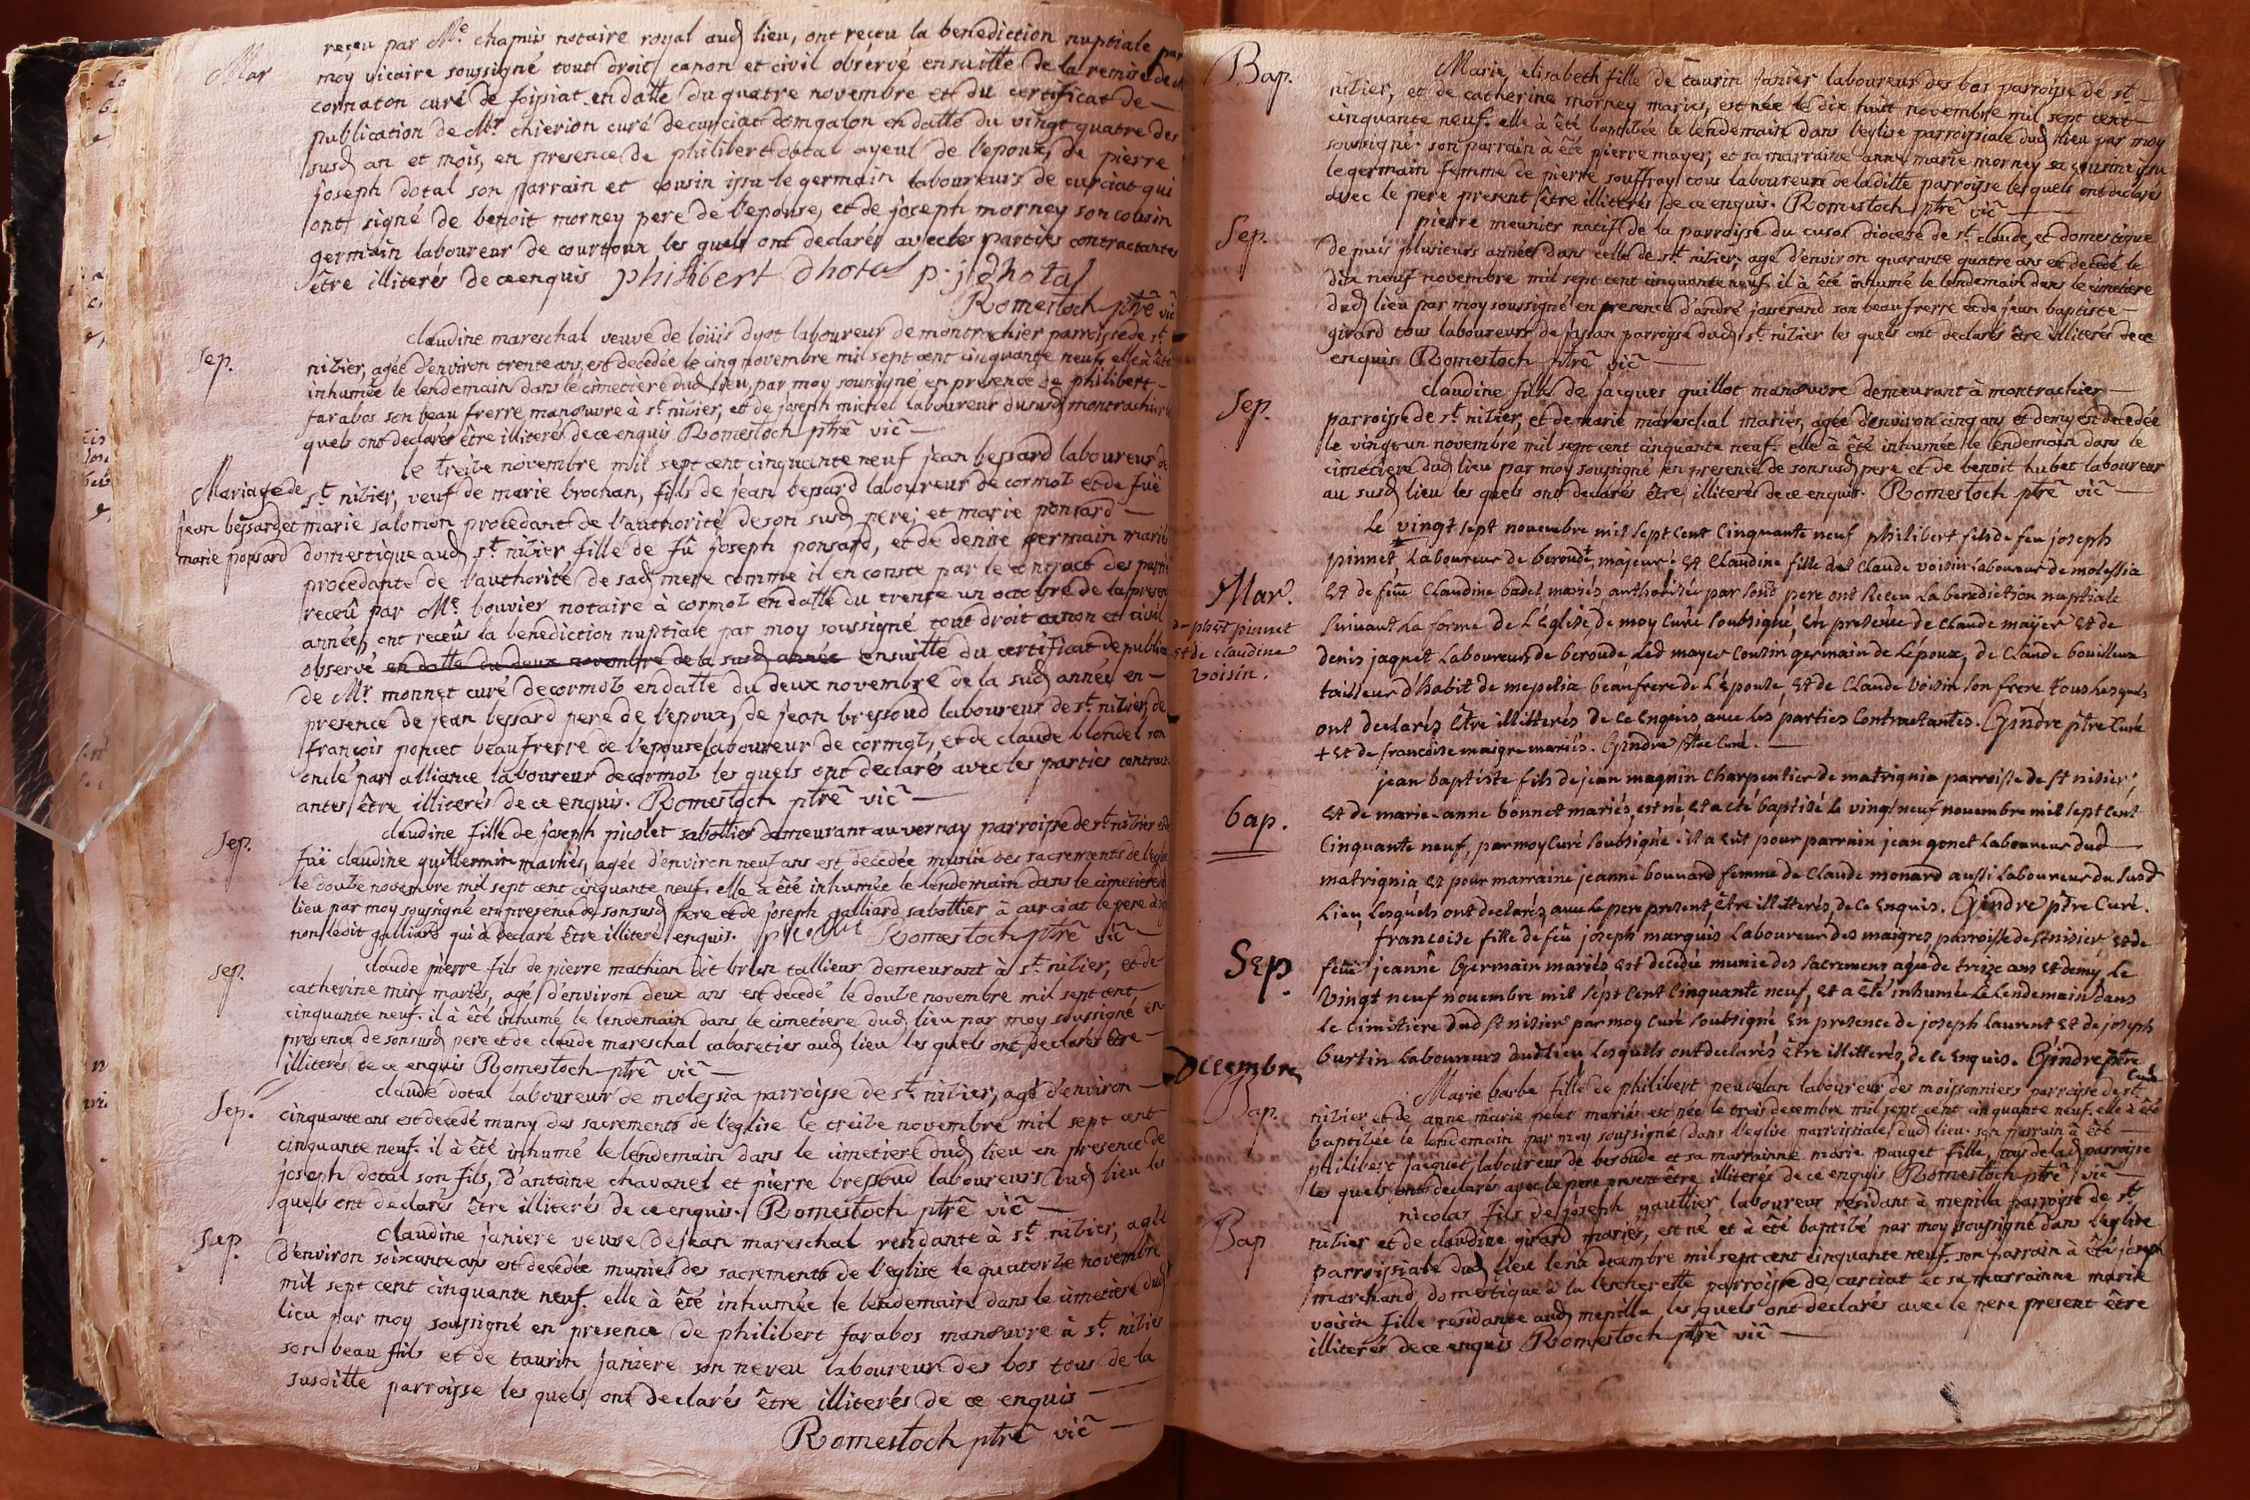 Mar
reçeu par Me chapuis notaire royal aud lieu, ont reçeu la benediction nuptiale par
moy vicaire soussigné tout droit canon et civil observé ensuitte de la remise de
cornaton curé de foissiat en datte du quatre novembre et du certificat de
publication de Mr chierion curé de curciat domgalon en datte du vingt quatre des
susd an et mois, en presence de philibert dotal ayeul de l'epoux, de pierre
joseph dotal son parrain et cousin issu le germain laboureurs de curciat qui
ont signé de benoit morney pere de l'epouse, et de joseph morney son cousin
germain laboureur de courtoux les quels ont declarés avec les parties contractantes
être illiterés de ce enquis philibert dhotal p. j dhotal
Romestoch ptrê vic
Sep.
claudine mareschal veuve de loüis dyot laboureur de montrachier parroisse de st
nizier, agée d'environ trente ans, est decedée le cinq novembre mil sept cent cinquante neuf, elle à êté
inhumée le lendemain dans le cimetiere dud lieu, par moy soussigné en presence de philibert
farabos son beau frerre manœuvre à st nizier, et de joseph michel laboureur du susd montrachier
quels ont declarés être illiterés de ce enquis Romestoch ptrê vic
Mariage de
jean bessard et
marie ponsard
le treize novembre mil sept cent cinquante neuf jean bessard laboureur de
st nizier, veuf de marie brochan, fils de jean bessard laboureur de cormoz et de fuë
marie salomon procedant de l'authorité de son susd pere; et marie ponsard
domestique aud st nizier fille de fû joseph ponsard, et de denise germain mariés
procedante de l'authorité de sad mere comme il en conste par le contract des
receû par Me bouvier notaire à cormoz en datte du trente un octobre de la
année, ont receûs la benediction nuptiale par moy soussigné tout droit canon et civil
observé en datte du deux novembre de la susd année ensuitte du certificat de
de Mr monnet curé de cormoz en datte du deux novembre de la susd année en
presence de jean bessard pere de l'epoux, de jean bressoud laboureur de st nizier, de
françois poncet beau frerre de l'epouse laboureur de cormoz, et de claude blondel son
oncle par alliance laboureur de cormoz les quels ont declarés avec les parties contract
antes être illiterés de ce enquis. Romestoch ptrê vic
Sep.
claudine fille de joseph picolet sabottier demeurant au vernay parroisse de st nizier et de
fuë claudine guillermin mariés, agée d'environ neuf ans est decedée munie des sacrements de l'eglise
le douze novembre mil sept cent cinquante neuf. elle à êté inhumée le lendemain dans le cimetiere
lieu par moy soussigné en presence de son susd pere et de joseph galliard sabottier à curciat le pere
non ledit galliard qui à declaré être illiteré enquis. Romestoch ptrê vic
Sep.
claude pierre fils de pierre mathian dit brun tallieur demeurant à st nizier, et de
catherine min mariés, agé d'environ deux ans est decedé le douze novembre mil sept cent
cinquante neuf. il à êté inhumé le lendemain dans le cimetiere dud lieu par moy soussigné en
presence de son susd pere et de claude mareschal cabaretier aud lieu les quels ont declarés être
illiterés de ce enquis Romestoch ptrê vic
Sep.
claude dotal laboureur de molessia parroisse de st nizier, agé d'environ
cinquante ans est decedé muny des sacrements de l'eglise le treize novembre mil sept cent
cinquante neuf. il à êté inhumé le lendemain dans le cimetiere dud lieu en presence de
joseph dotal son fils, d'antoine chavanel et pierre bressoud laboureurs dud lieu les
quels ont declarés être illiterés de ce enquis. Romestoch ptrê vic
Sep.
claudine janiere veuve de jean mareschal residante à st nizier, agée
d'environ soixante ans est decedée muniee des sacrements de l'eglise le quatorze novembre
mil sept cent cinquante neuf. elle à êté inhumée le lendemain dans le cimetiere dud
lieu par moy soussigné en presence de philibert farabos manœuvre à st nizier
son beau fils et de taurin janiere son neveu laboureur des bos tous de la
susditte parroisse les quels ont declarés être illiterés de ce enquis
Romestoch ptrê vic
Bap.
Marie elisabeth fille de taurin janier laboureur des bos parroisse de st
nizier, et de catherine morney mariés, est née le dix huit novembre mil sept cent
cinquante neuf. elle à êté baptizée le lendemain dans l'eglise parroissiale dud lieu par moy
soussigné. son parrain à êté pierre mayer, et sa marraine anne marie morney sa cousine issu
le germain femme de pierre souffray tous laboureurs de laditte parroisse les quels ont declarés
avec le pere present être illiterés de ce enquis. Romestoch ptrê vic
Sep.
pierre meunier natif de la parroisse du cusol diocese de st claude, et domestique
depuis plusieurs années dans celle de st nizier, agé d'environ quarante quatre ans est decedé le
dix neuf novembre mil sept cent cinquante neuf. il à êté inhumé le lendemain dans le cimetiere
dud lieu par moy soussigné en presence d'andré janerand son beau frerre et de jean baptiste
girard tous laboureurs de passan parroisse dud st nizier les quels ont declarés être illiterés de ce
enquis Romestoch ptrê vic
Sep.
claudine fille de jacques guillot manœuvre demeurant à montrachier
parroisse de st nizier, et de marie mareschal mariés, agée d'environ cinq ans et demy est decedée
le vingt un novembre mil sept cent cinquante neuf. elle à êté inhumée le lendemain dans le
cimetiere dud lieu par moy soussigné en presence de son susd pere et de benoit hubet laboureur
au susd lieu les quels ont declarés être illiterés de ce enquis. Romestoch ptrê vic
Mar.
de phbt pinnet
et de claudine
voisin.
Le vingt sept novembre mil sept cent cinquante neuf philibert fils de feu joseph
pinnet Laboureur de beroude + majeur; et Claudine fille de Claude voisin laboureur de molessia
et de feue Claudine badel mariés authorisée par sont pere, ont Receu La benediction nuptiale
suivant La forme de L'Eglise, de moy Curé soubsigné, En presence de Claude mayer et de
denis jaquet Laboureurs de beroude led mayer Cousin germain de L'Epoux, de Claude bouilloux
tailleur d'habit de mepelia beaufrere de L'Epouse, et de Claude Voisin son frere tous lesquels
ont declarés Etre illitterés de ce Enquis avec les parties Contractantes. Gindre ptre Curé
+ et de francoise maigre mariés. Gindre ptre Curé.
bap.
jean baptiste fils de jean magnin Charpentier de matrignia parroisse de st nizier,
et de marie-anne bonnet mariés, est né, et a eté baptisé le vingt neuf novembre mil sept cent
Cinquante neuf, par moy Curé soubsigné. il a eut pour parrain jean gonet Laboureur dud
matrignia, et pour marraine jeanne bouvard femme de Claude monard aussi Laboureur du susd
Lieu, Lesquels ont declarés avec Le pere present, être illitterés, de ce Enquis. Gindre ptre Curé.
Sep.
francoise fille de feu joseph marquis Laboureur des maigres parroisse de st nisier et de
feue jeanne Germain mariés est decedée munie des sacremens agée de treize ans et demy Le
Vingt neuf novembre mil sept cent Cinquante neuf, et a Eté inhumée Le Lendemain dans
le Cimetiere dud st nizier par moy Curé soubsigné En presence de joseph laurent et de joseph
burtin Laboureurs dud lieu Lesquels ont declarés Etre illitterés, de ce Enquis. Gindre ptre
Curé
Decembre
Bap.
Marie barbe fille de philibert peuvelan laboureur des moissonniers parroisse de st
nizier et de anne marie pelet mariés est née le trois decembre mil sept cent cinquante neuf elle à êté
baptizée le lendemain par moy soussigné dans l'eglise parroissiale dud lieu. son parrain à êté
philibert jacquet, laboureur de beroude et sa marrainne marie pauget fille, tous de lad parroisse
les quels ont declarés avec le pere present être illiterés de ce enquis Romestoch ptrê vic
Bap
nicolas fils de joseph gaultier laboureur residant à mepilla parroisse de st
nizier et de claudine girard mariés, est né et à êté baptizé par moy soussigné dans l'eglise
parroissiale dud lieu le six decembre mil sept cent cinquante neuf. son parrain à êté joseph
marchand domestique à la lescherette parroisse de curciat et sa marrainne marie
voisin fille residante aud mepilla les quels ont declarés avec le pere present être
illiterés de ce enquis Romestoch ptrê vic